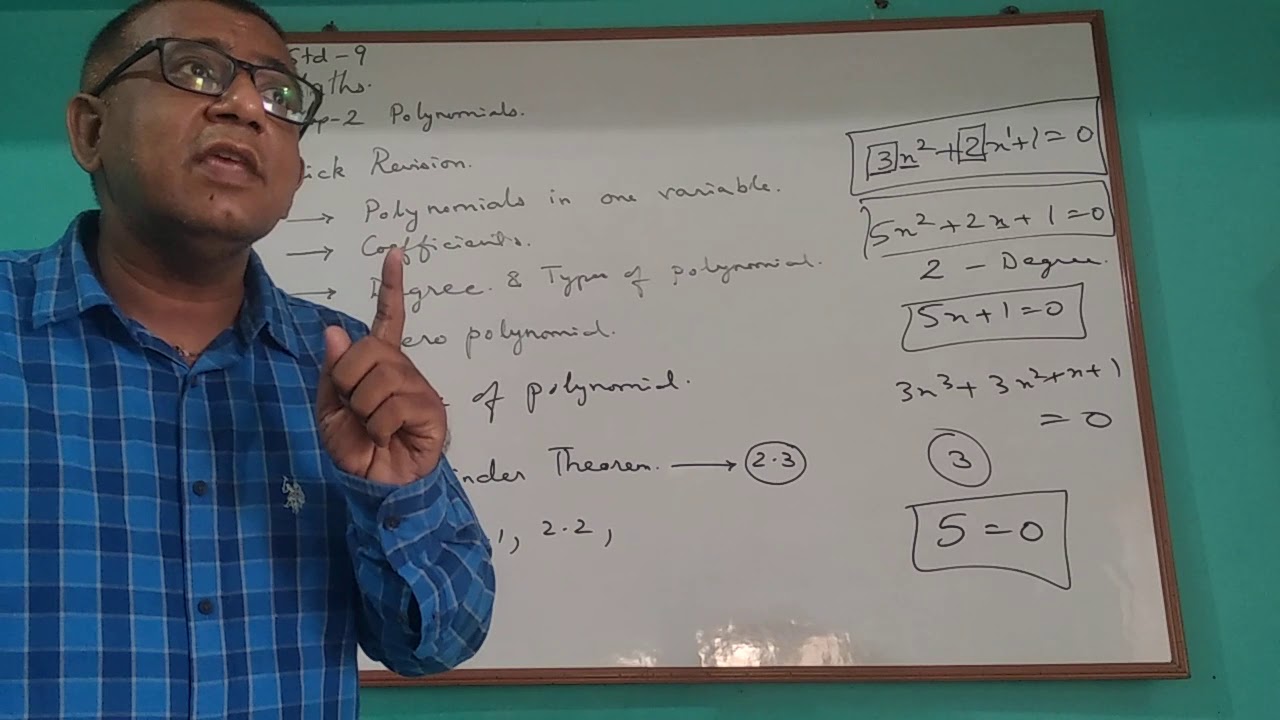 Std - 9
Maths.
p-2 Polynomials.
ick Revision.
→ Polynomials in one variable.
→ Coefficients.
→ Degree. & Types of polynomial.
ero polynomial.
of polynomial.
inder Theorem. → 2.3
1, 2.2,
3x² + 2x¹ + 1 = 0
5x² + 2x + 1 = 0
2 - Degree.
5x + 1 = 0
3x³ + 3x² + x + 1
= 0
3
5 = 0